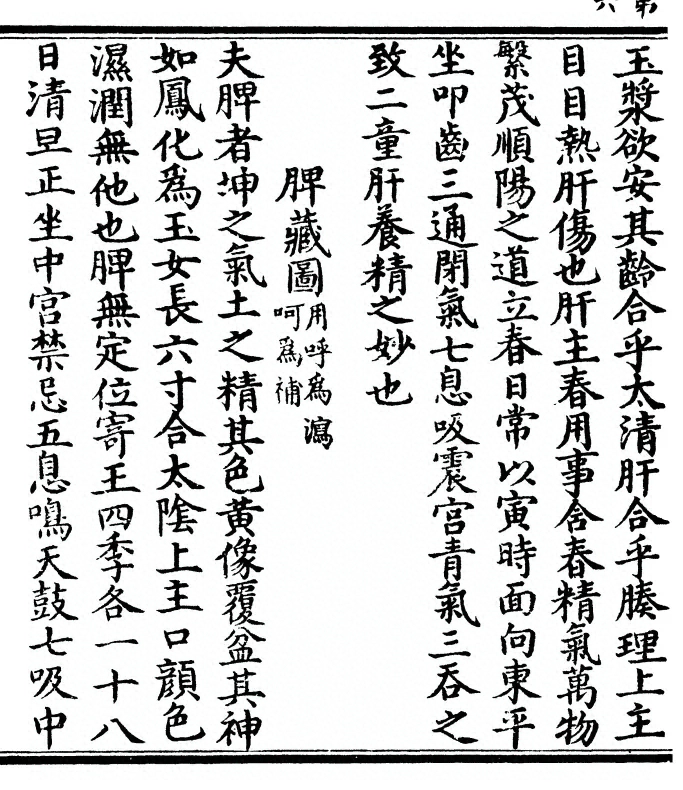 玉漿欲安其齡合乎太清肝合乎腠理上主
目目熱肝傷也肝主春用事含春精氣萬物
繁茂順陽之道立春日常以寅時面向東平
坐叩齒三通閉氣七息吸震宮青氣三吞之
致二童肝養精之妙也
脾藏圖用呼爲瀉
呵爲補
夫脾者坤之氣土之精其色黃像覆盆其神
如鳳化爲玉女長六寸合太陰上主口顔色
濕潤無他也脾無定位寄王四季各一十八
日清旦正坐中宮禁忌五息鳴天鼓七吸中